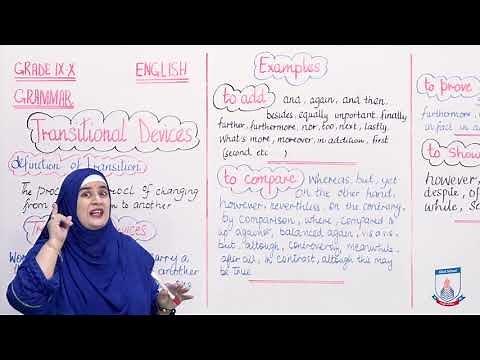 GRADE IX-X ENGLISH
GRAMMAR
Transitional Devices
definition of transition
The process of changing
from to another
DEVICES
carry a
another
Examples
to add and, again, and then,
besides, equally important, finally
further, furthermore, nor, too, next, lastly
What's more, moreover, in addition, first
(second etc )
to compare Whereas, but, yet
on the other hand,
however, nevertheless, on the contrary,
by comparison, where, compared
up against, balanced again, vis a vis
but, although,
after all, in contrast, although this may
be true
to prove
furthermore
in fact in
to show
however,
despite, of
while, s